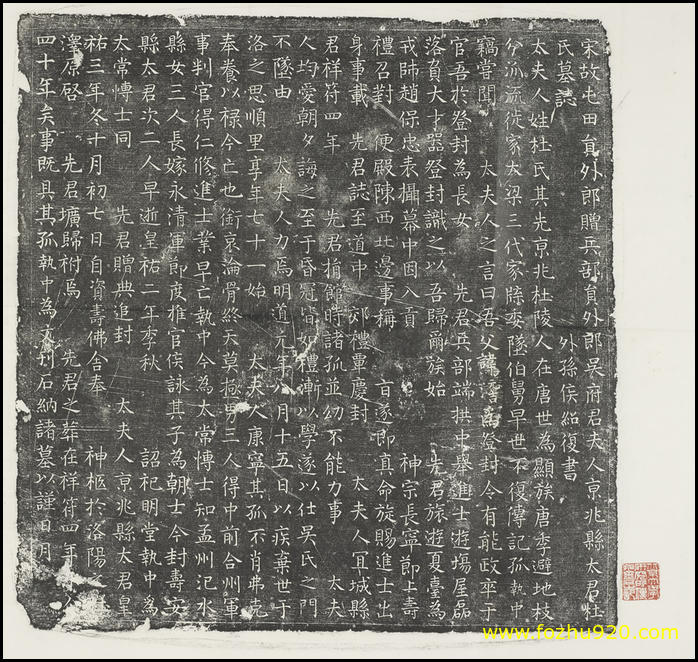 宋故屯田員外郎贈兵部員外郎吳府君夫人京兆縣太君杜
氏墓誌 外孫侯紹復書
太夫人姓杜氏其先京兆杜陵人在唐世為顯族唐季避地枝
分派流徙家大梁三代家牒委墜伯舅早世不復傳記孤執中
竊嘗聞 太夫人之言曰吾父諱為登封令有能政卒于
官吾於登封為長女 先君兵部端拱中舉進士遊場屋磊
落負大才器登封識之以吾歸爾族始 先君旅遊夏臺為
戎帥趙保忠表攝幕中因入貢 神宗長寧節上壽
禮召對 便殿陳西北邊事稱 旨遂即真命旋賜進士出
身事載 先君誌至道中 郊禮覃慶封 太夫人宜城縣
君祥符四年 先君捐館時諸孤並幼不能力事 太夫
人均愛朝夕誨之至于昏冠皆如禮漸以學遂以仕吳氏之門
不墜由 太夫人力焉明道元年八月十五日以疾棄世于
洛之思順里享年七十一始 太夫人康寧其孤不肖弗克
奉養以祿今亡也銜哀淪骨終天莫拯男三人得中前合州軍
事判官得仁修進士業早亡執中今為太常博士知孟州汜水
縣女三人長嫁永清軍節度推官侯詠其子為朝士今封壽安
縣太君次二人早逝皇祐二年季秋 詔祀明堂執中為
太常博士同 先君贈典追封 太夫人京兆縣太君皇
祐三年冬十月初七日自資壽佛舍奉 神柩於洛陽
澤原啓 先君壙歸祔焉 先君之葬在祥符四年
四十年矣事既具其孤執中為文刊石納諸墓以謹日月
www.fozhu920.com